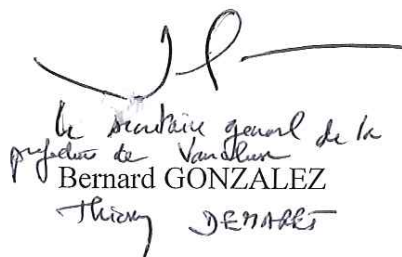 Le secrétaire général de la
préfecture de Vaucluse
Bernard GONZALEZ
Thierry DEMARET